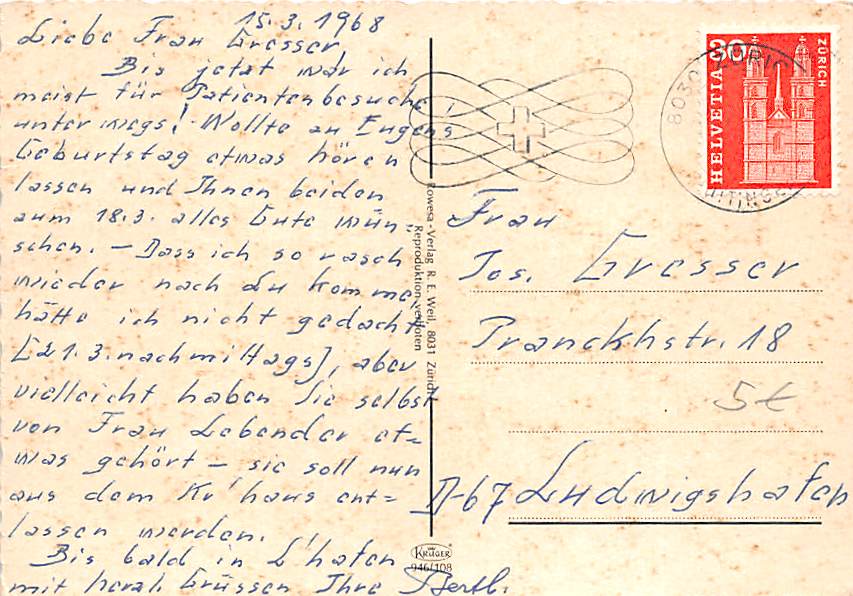 15.3.1968
Liebe Frau Gresser
Bis jetzt war ich
meist für Patientenbesuche
unterwegs! Wollte zu Eugens
Geburtstag etwas hören
lassen und Ihnen beiden
zum 18.3. alles Gute wün-
schen. – Dass ich so rasch
wieder nach Lu komme
hätte ich nicht gedacht
[21.3. nachmittags], aber
vielleicht haben Sie selbst
von Frau Lebender et=
was gehört – sie soll nun
aus dem Kr'haus ent=
lassen werden.
Bis bald in L'hafen
mit herzl. Grüssen Ihre Bertl.
Rowesa-Verlag R. E. Weil, 8031 Zürich
Reproduktion verboten
KRÜGER
946/108
HELVETIA 30
ZÜRICH
8039 ZÜRICH
Frau
Jos. Gresser
Pranckhstr. 18
5€
D-67 Ludwigshafen